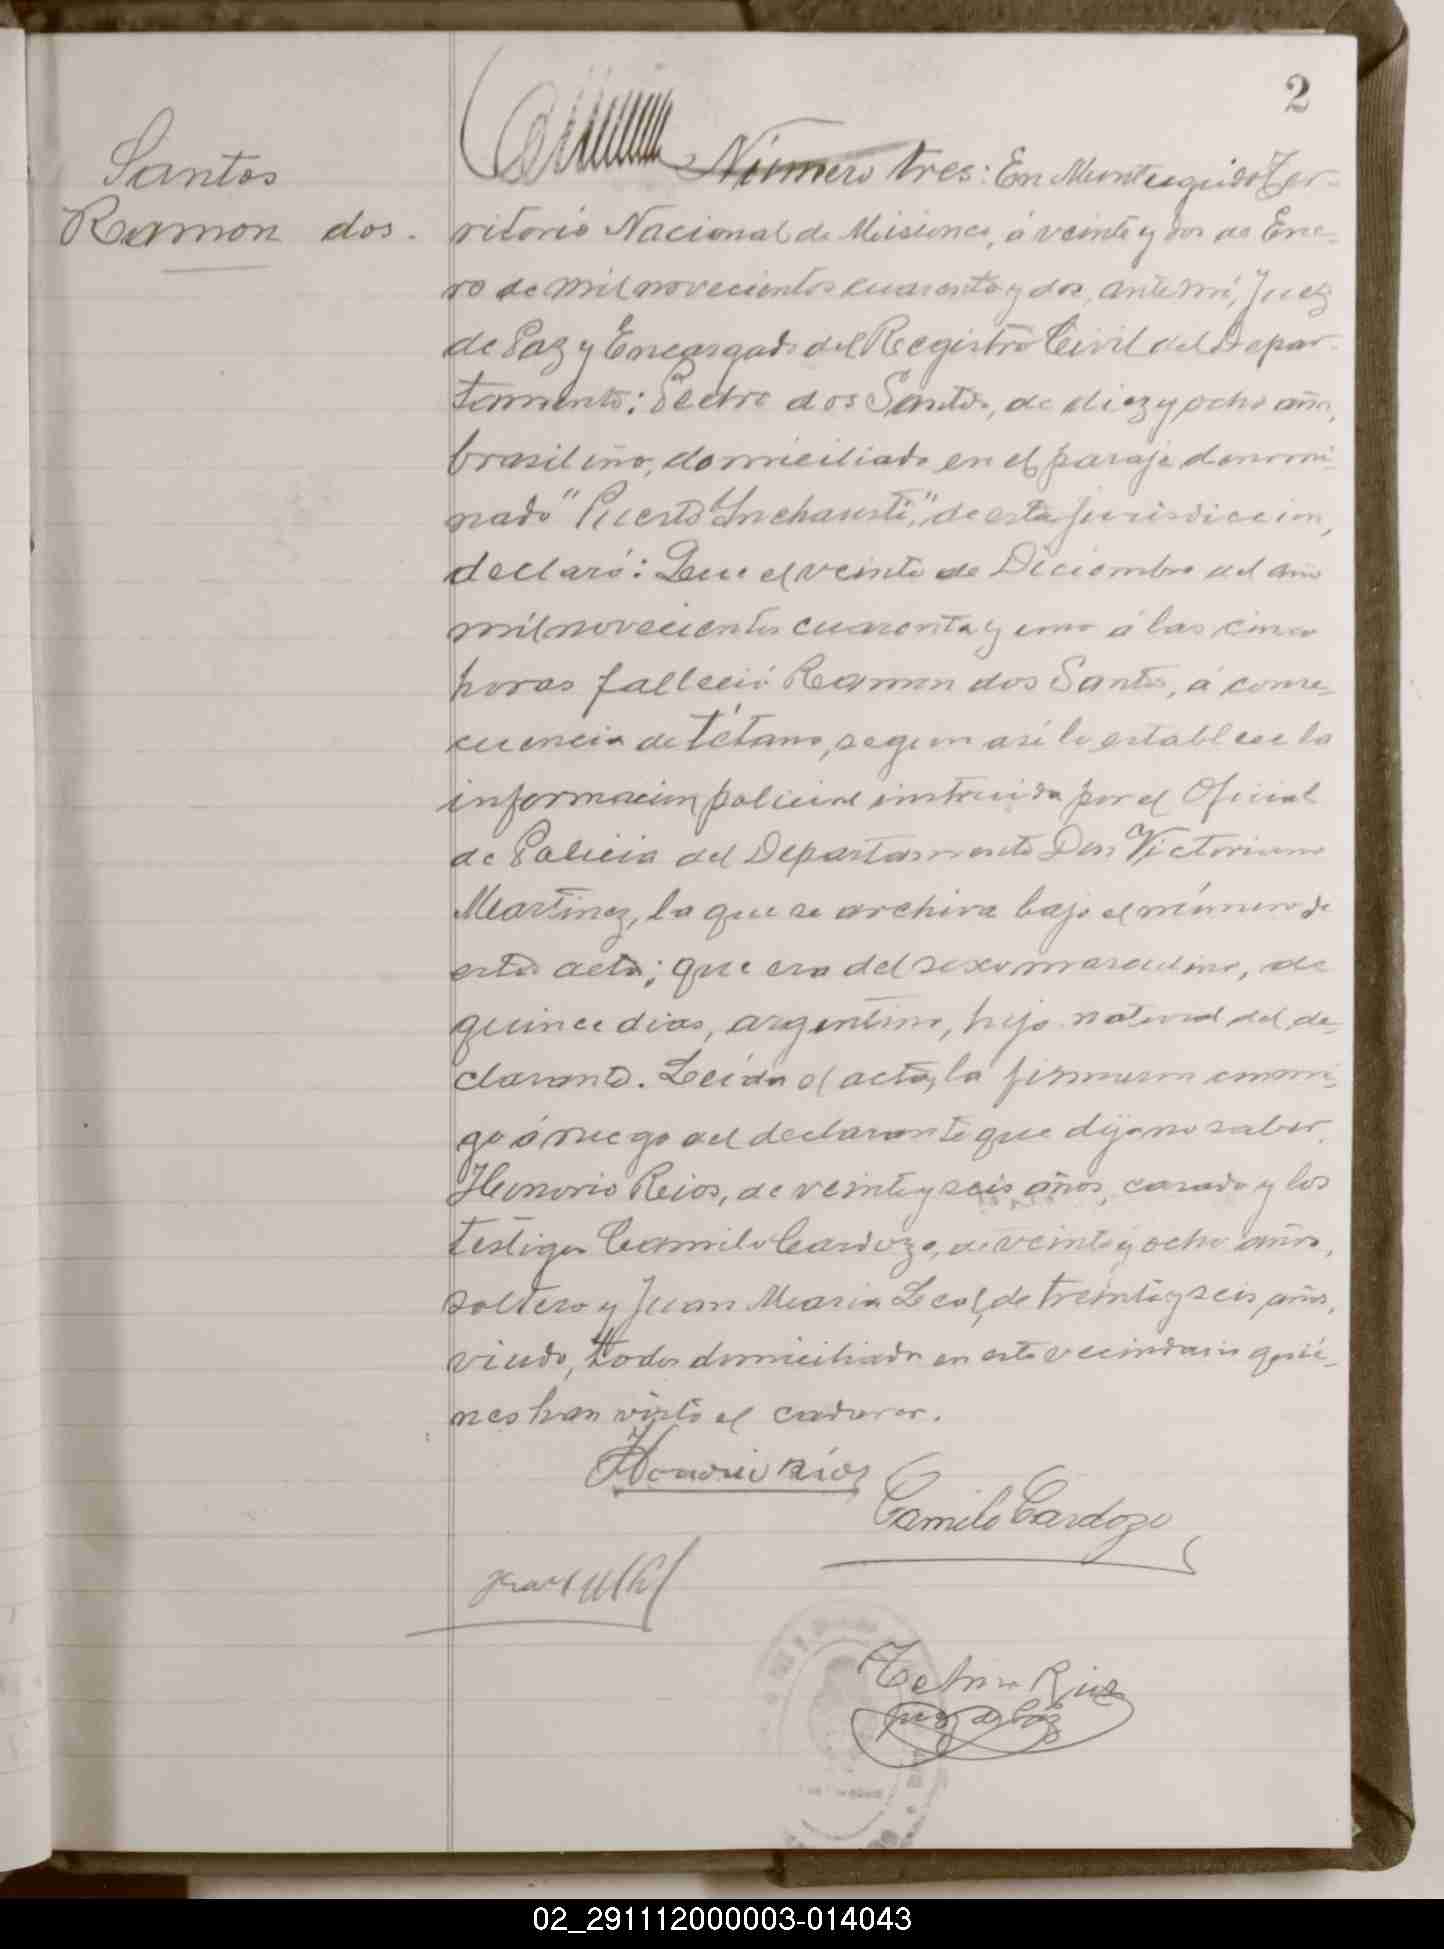 2
Santos
Ramon dos.
Número tres: En Monteagudo Ter-
ritorio Nacional de Misiones, á veinte y dos de Ene-
ro de mil novecientos cuarenta y dos, ante mí, Juez
de Paz y Encargado del Registro Civil del Depar-
tamento; Pedro dos Santos, de diez y ocho años,
brasileño, domiciliado en el paraje denomi-
nado "Puerto Inchausti", de esta jurisdiccion,
declaró: Que el veinte de Diciembre del año
mil novecientos cuarenta y uno á las cinco
horas falleció Ramon dos Santos, á conse-
cuencia de tétano, segun asi lo establece la
informacion policial instruida por el Oficial
de Policia del Departamento Don Victoriano
Martinez, la que se archiva bajo el número de
esta acta; que era del sexo masculino, de
quince dias, argentino, hijo natural del de-
clarante. Leida el acta, la firmaron conmi-
go á ruego del declarante que dijo no saber,
Honorio Rios, de veinte y seis años, casado y los
testigos Camilo Cardozo, de veinte y ocho años,
soltero y Juan Maria Leal, de treinta y seis años,
viudo, todos domiciliados en este vecindario quié-
nes han visto el cadaver.
Honorio Ríos
Camilo Cardozo
Juez de Paz
02_291112000003-014043